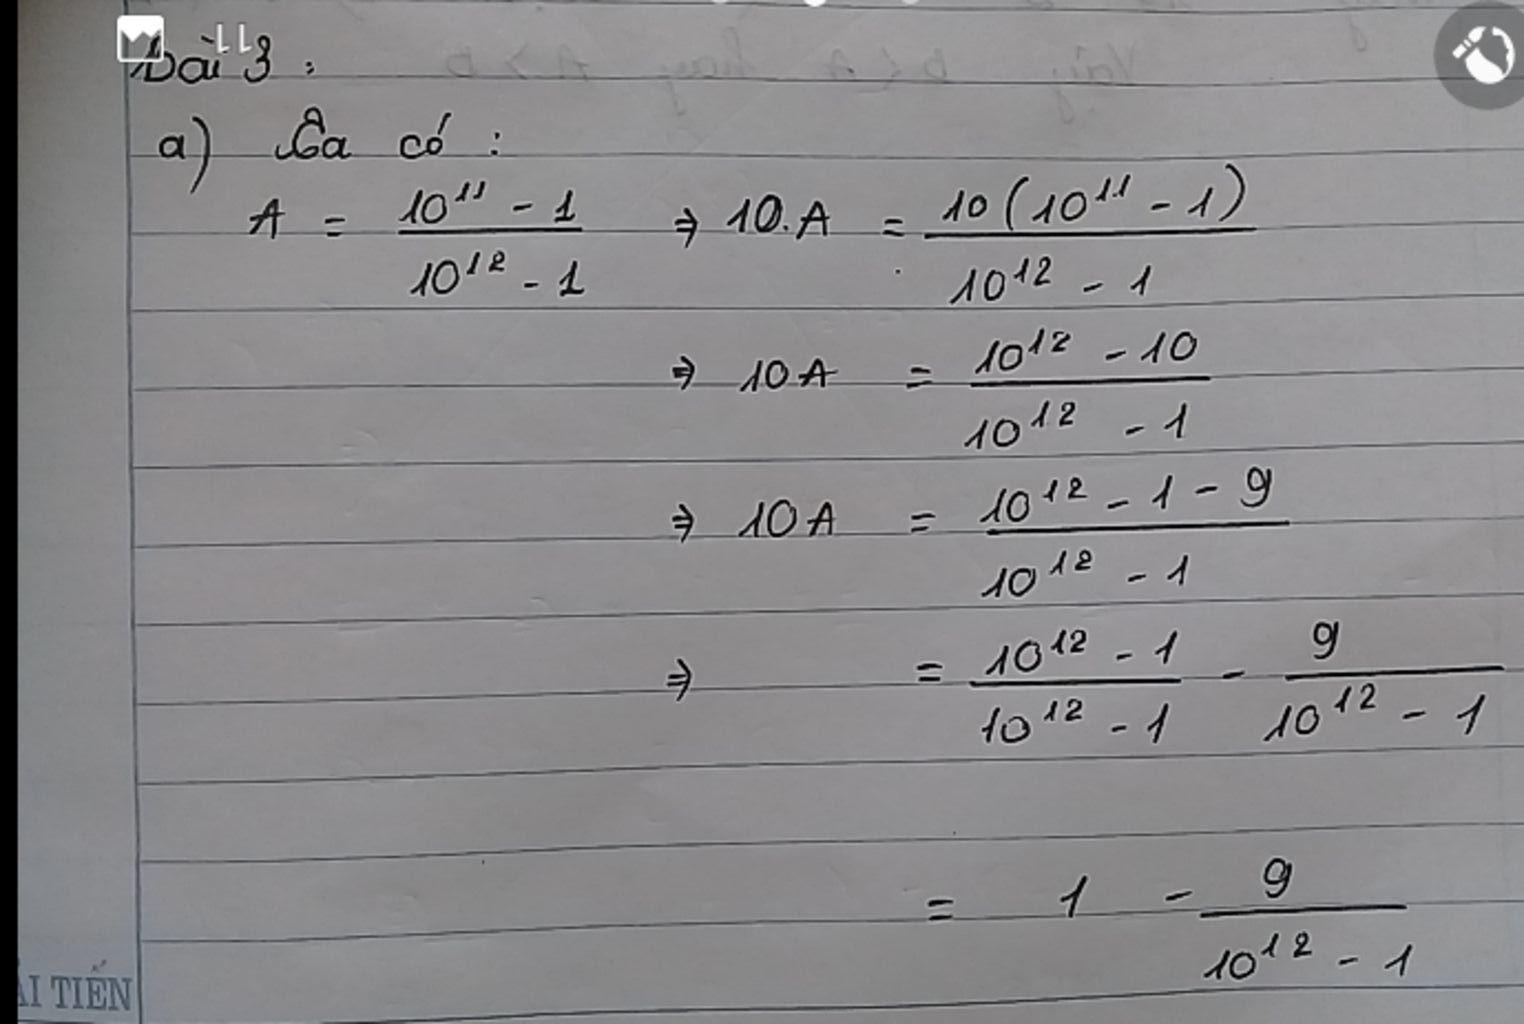 Bài 3 :
a) Ta có :
A = (10^11 - 1)/(10^12 - 1) ⇒ 10.A = 10(10^11 - 1)/(10^12 - 1)
⇒ 10A = (10^12 - 10)/(10^12 - 1)
⇒ 10A = (10^12 - 1 - 9)/(10^12 - 1)
⇒ = (10^12 - 1)/(10^12 - 1) - 9/(10^12 - 1)
= 1 - 9/(10^12 - 1)
ẢI TIẾN